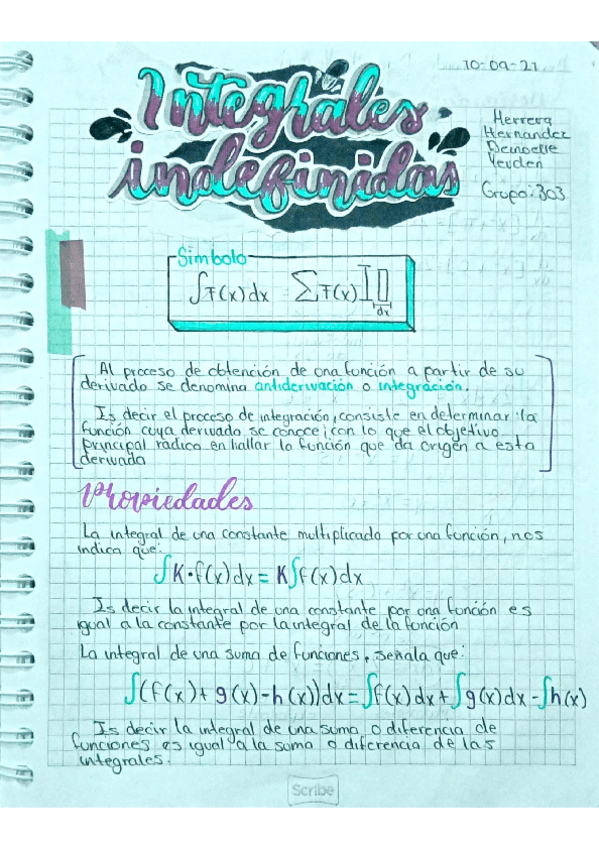 10-09-21
Integrales
indefinidas
Herrera
Hernandez
Grupo: 303
Simbolo
∫f(x)dx Σf(x)
dx
Al proceso de obtención de una función a partir de su
derivada se denomina antiderivación o integración.
Is decir el proceso de integración, consiste en determinar la
función cuya derivada se conoce; con lo que el objetivo
principal radica en hallar la función que da origen a esta
derivada
Propiedades
La integral de una constante multiplicada por una función, nos
indica que:
∫K·f(x)dx = K∫f(x)dx
Is decir la integral de una constante por una función es
igual a la constante por la integral de la función
La integral de una suma de funciones, señala que:
∫(f(x)+g(x)-h(x))dx=∫f(x)dx+∫g(x)dx-∫h(x)
Is decir la integral de una suma o diferencia de
funciones es igual a la suma o diferencia de las
integrales.
Scribe